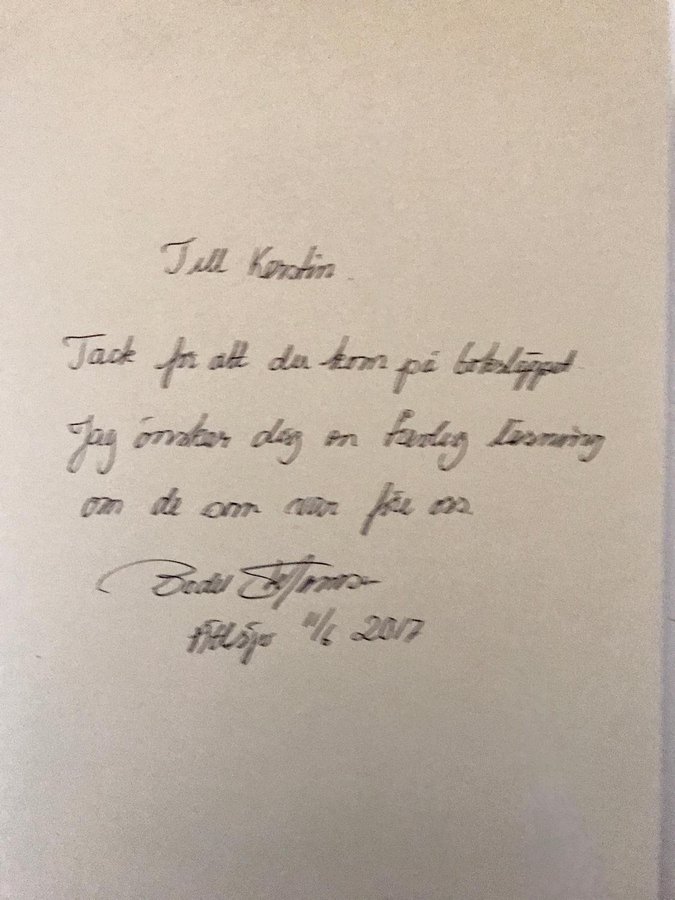 Till Kerstin
Tack för att du kom på boksläppet
Jag önskar dig en läsning
om de som var före oss
Bodil
11/6 2017